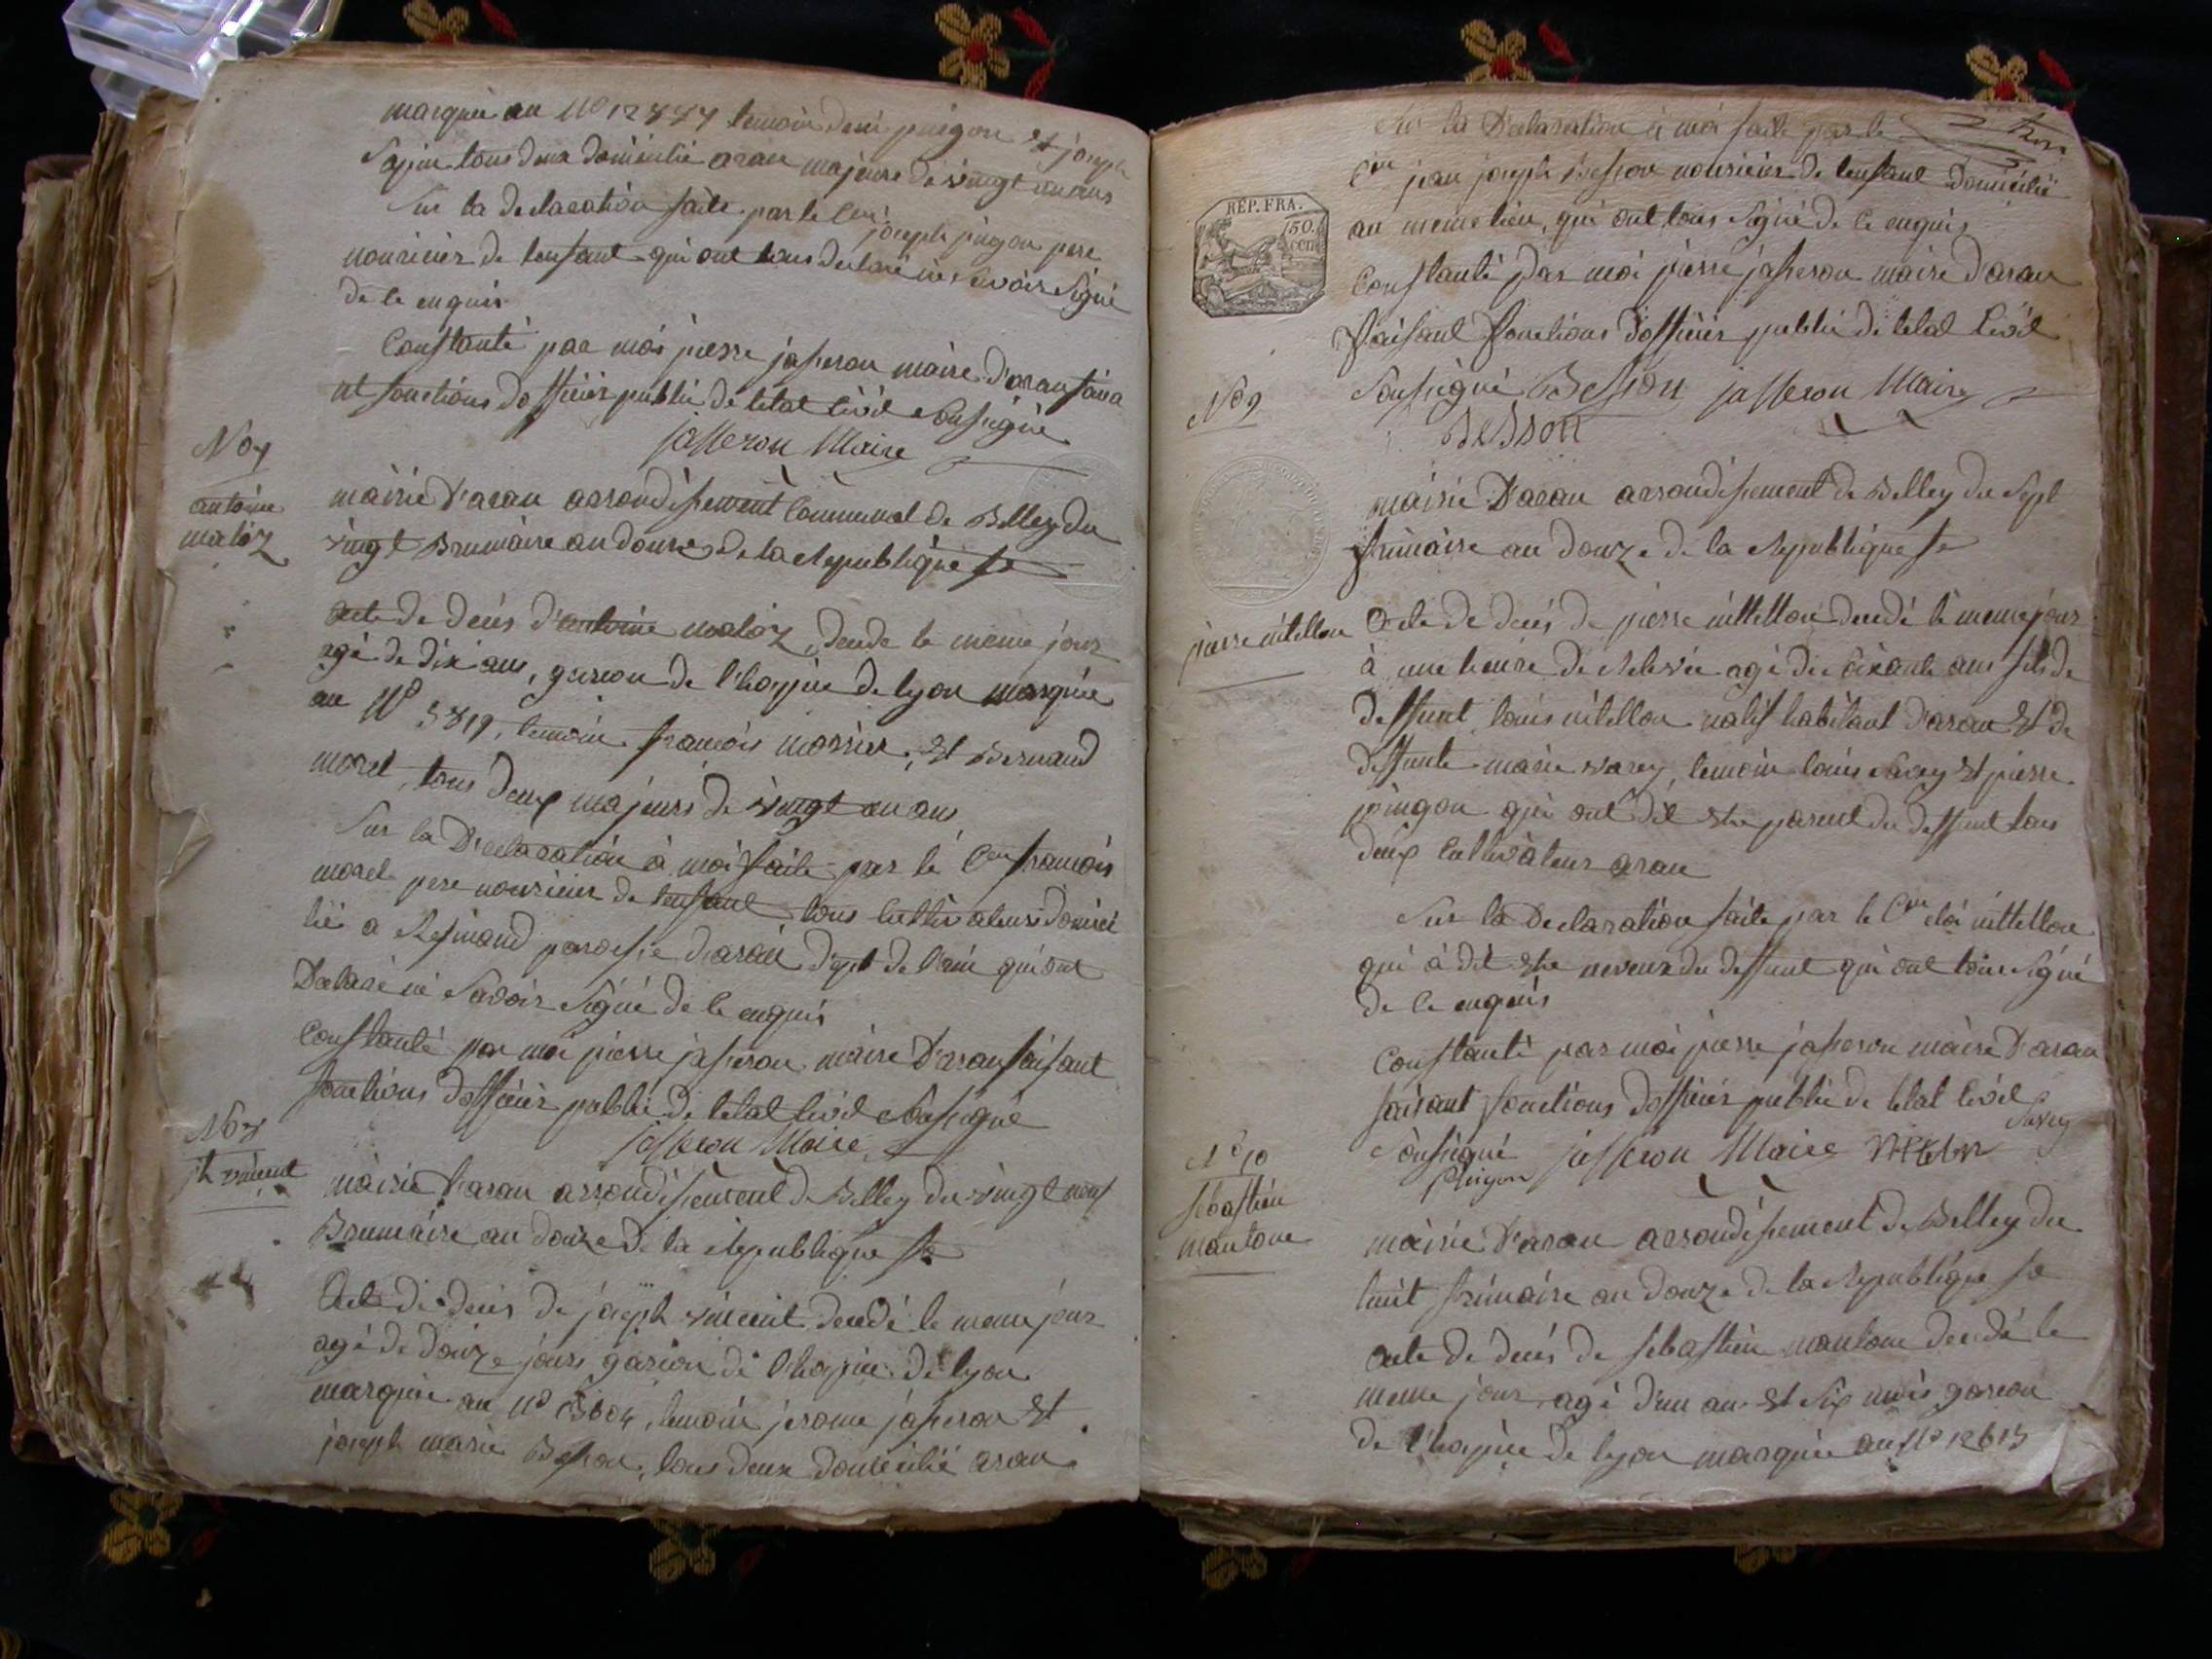 marquée au No 12847 temoin deni pingon et joseph
Sapin tous deux domicilié aran majeure de vingt un ans
Sur la declaration faite par le Cen joseph pingon pere
nouricier de lenfant qui ont tous declaré ne Savoir Signé
de ce enquis
Constanté par moi pierre jasseron maire d'aran faisa
nt fonctions dofficier public de letat civil Soussigné
jasseron Maire
No 7
antoine
maloz
mairie D'aran arrondissement Communal de Belley du
vingt Brumaire an douze de la Republique fe
acte de decés d'antoine maloz, decede le meme jour
agé de dix ans, garcon de l'hospice de lyon marquée
au No 5819, temoin francois morrier, et Bernard
morel, tous deux majeurs de vingt un ans
Sur la Declaration à moi faite par le Cen francois
morel pere nouricier de lenfant tous cultivateurs domici
lié a Resinand paroisse d'aran dept de l'ain qui ont
Déclaré né Savoir Signé de ce enquis
Constanté par moi pierre jasseron maire D'aran faisant
fonctions dofficier public de letat civil Soussigné
jasseron Maire
No 8
jh vincent
mairie D'aran arrondissement de Belley du vingt neuf
Brumaire an douze de la Republique fe
Acte de decés de joseph vincent decedé le meme jour
agé de douze jours garcon de l'hospice de lyon
marquée au No 13604, temoin jerome jasseron et
joseph marie Besson, tous deux domicilié aran
Sur la Declaration à moi faite par le
Cen jean joseph Besson nouricier de lenfant domicilié
au meme lieu, qui ont tous Signé de ce enquis
REP. FRA.
50.
cen
Constanté par moi pierre jasseron maire d'aran
faisant fonctions dofficier public de letat Civil
Soussigné Besson jasseron Maire
Besson
No 9
mairie D'aran arrondissement de Belley du Sept
frimaire an douze de la Republique fe
pierre nitellon
Acte de decés de pierre nittellon decedé le meme jour
à une heure de Relevée agé de Soixante ans fils de
deffunt louis nitellon natif habitant D'aran Et de
deffunte marie varey, temoin louis Savey Et pierre
pingon qui ont dit etre parent du deffunt tous
deux Cultivateur aran
Sur la Declaration faite par le Cen nittellon
qui à dit etre neveux du deffunt qui ont tous Signé
de ce enquis
Constanté par moi pierre jasseron maire D'aran
faisant fonctions dofficier public de letat Civil
Soussigné jasseron Maire nitelon Savey
Pingon
No 10
sebastien
mantone
mairie D'aran arrondissement de Belley du
huit frimaire an douze de la Republique fe
acte de decés de sebastien mantone decedé le
meme jour, agé d'un an et Six mois garcon
de l'hospice de lyon marquée au No 12613